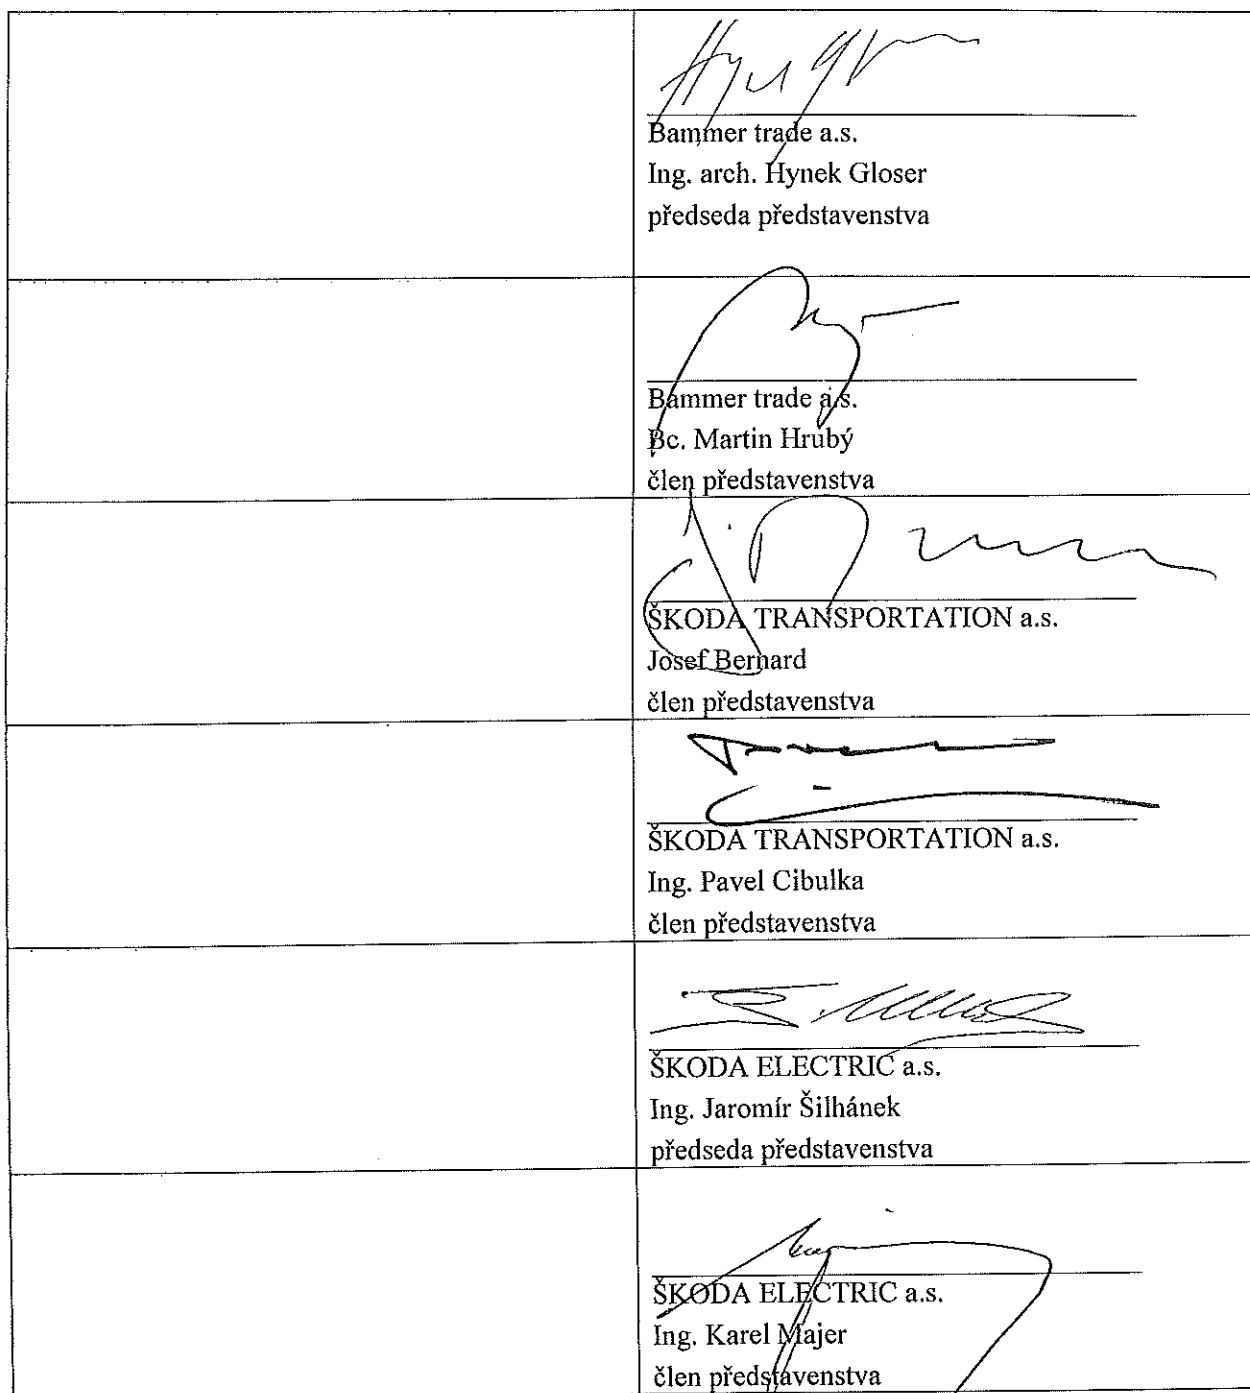 Bammer trade a.s.
Ing. arch. Hynek Gloser
předseda představenstva
Bammer trade a.s.
Bc. Martin Hrubý
člen představenstva
ŠKODA TRANSPORTATION a.s.
Josef Bernard
člen představenstva
ŠKODA TRANSPORTATION a.s.
Ing. Pavel Cibulka
člen představenstva
ŠKODA ELECTRIC a.s.
Ing. Jaromír Šilhánek
předseda představenstva
ŠKODA ELECTRIC a.s.
Ing. Karel Majer
člen představenstva